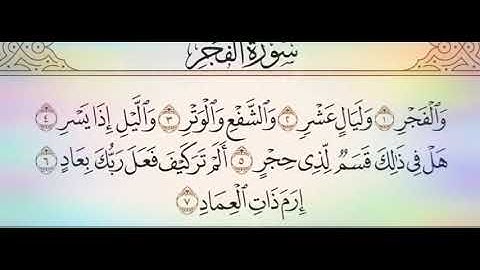 سُورَةُ الفَجْرِ
وَٱلْفَجْرِ ١ وَلَيَالٍ عَشْرٍ ٢ وَٱلشَّفْعِ وَٱلْوَتْرِ ٣ وَٱلَّيْلِ إِذَا يَسْرِ ٤
هَلْ فِى ذَٰلِكَ قَسَمٌ لِّذِى حِجْرٍ ٥ أَلَمْ تَرَ كَيْفَ فَعَلَ رَبُّكَ بِعَادٍ ٦
إِرَمَ ذَاتِ ٱلْعِمَادِ ٧